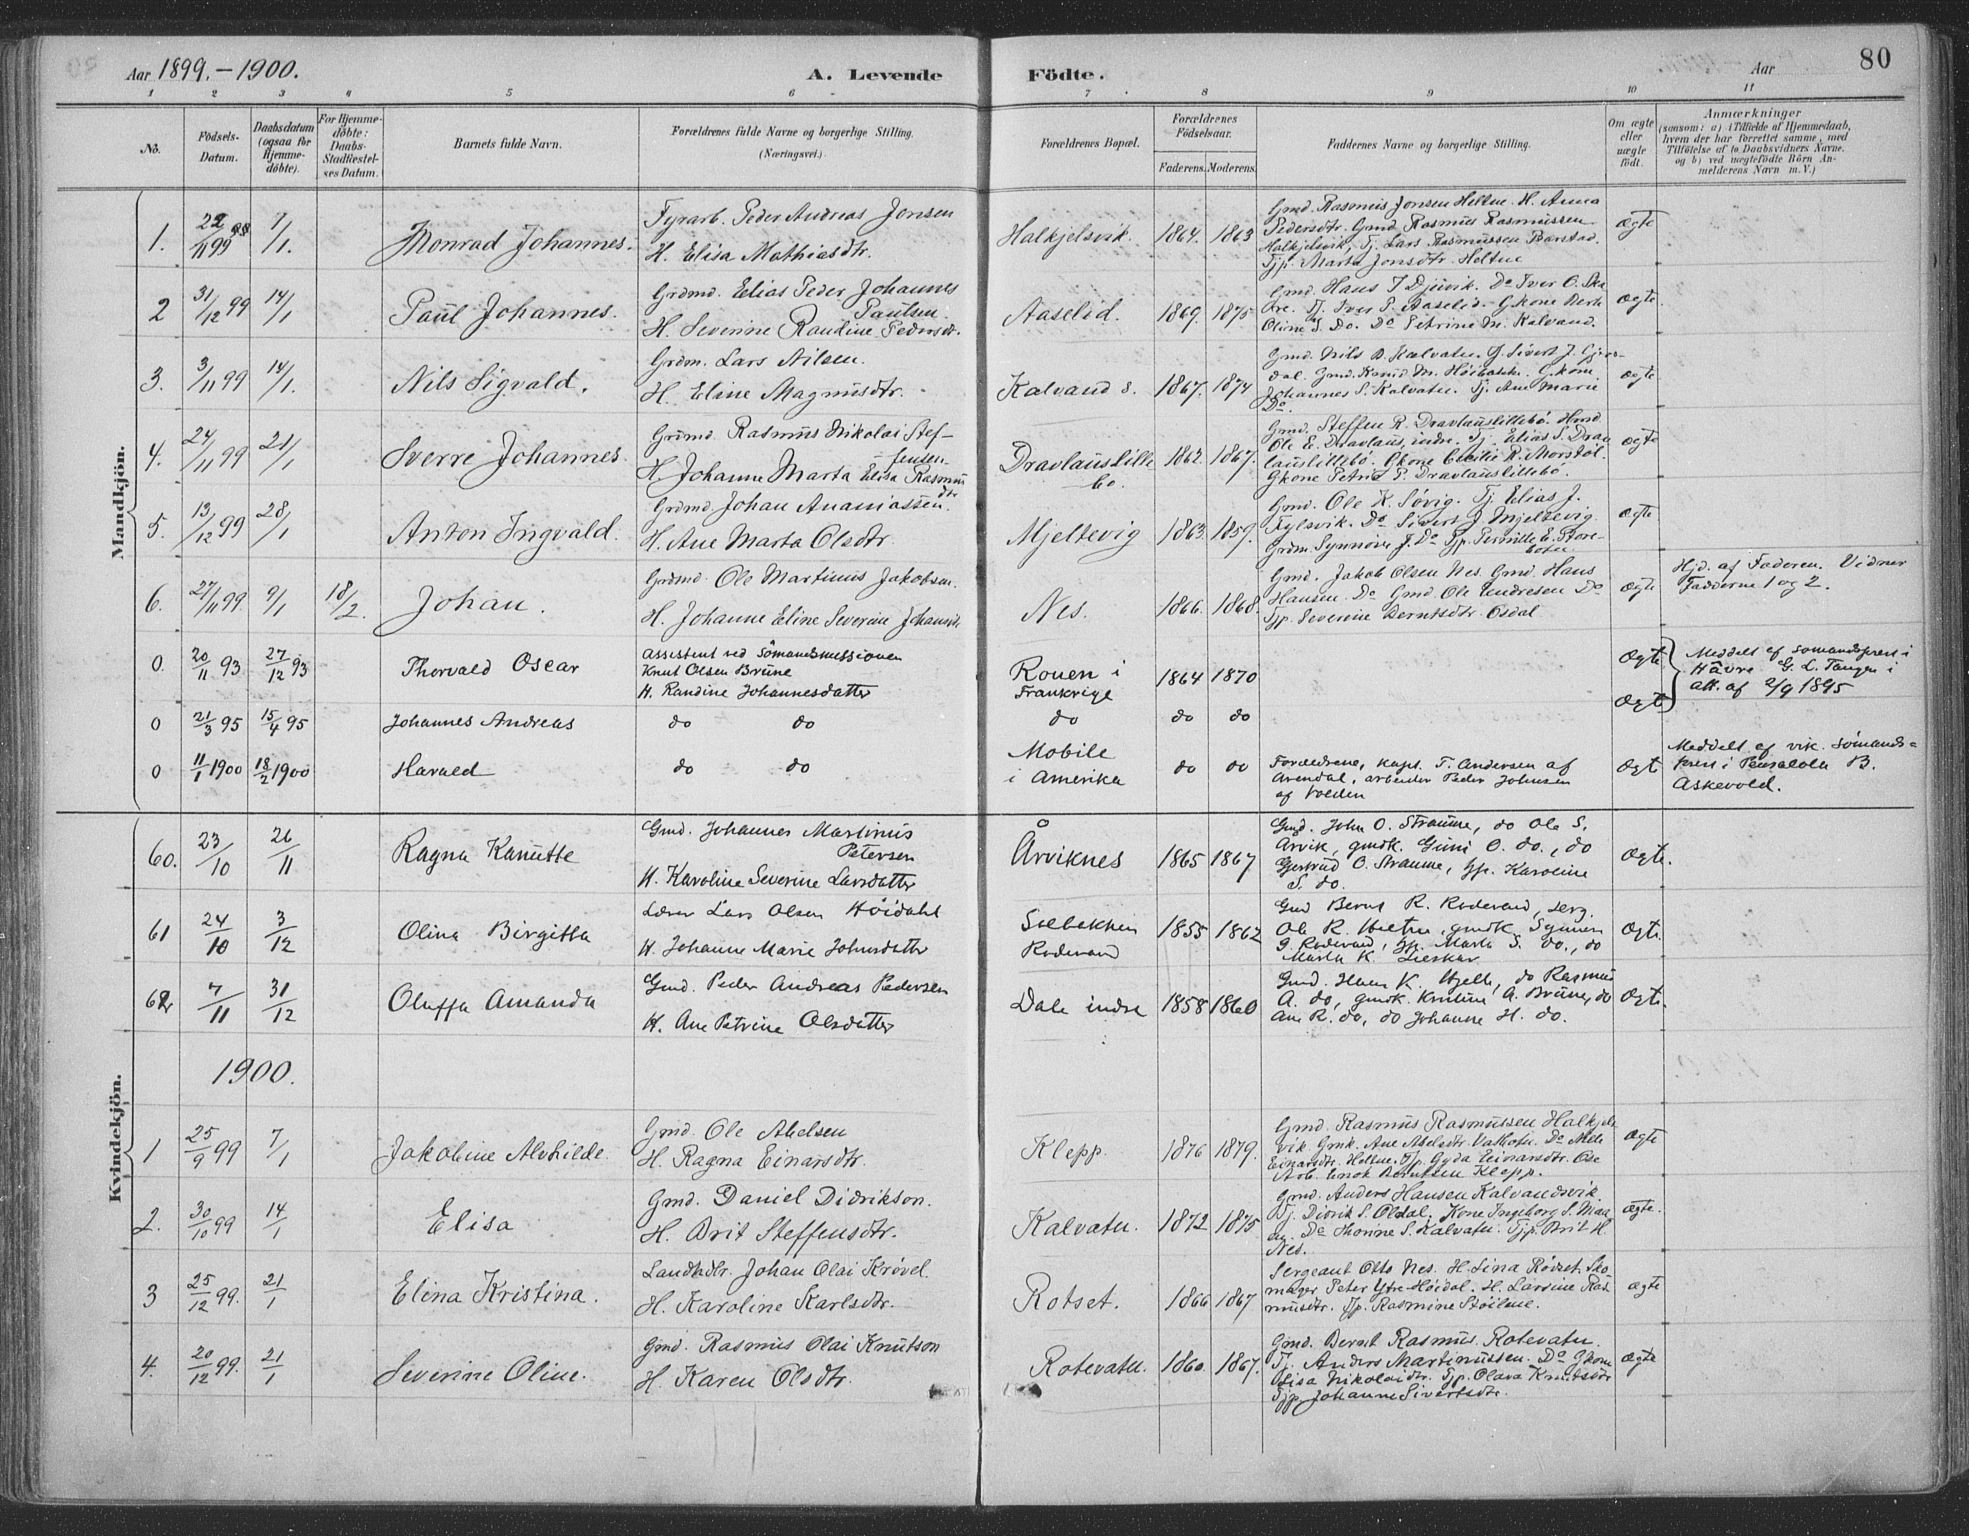 Aar 1899. - 1900.
A. Levende
Födte.
Aar
80
1 2 3 4 5 6 7 8 9 10 11
No.
Födsels-
Datum.
Daabsdatum
(ogsaa for
Hjemme-
döbte).
For Hjemme-
döbte:
Daabs-
Stadfæstel-
ses Datum.
Barnets fulde Navn.
Forældrenes fulde Navne og borgerlige Stilling.
(Næringsvei.)
Forældrenes Bopæl.
Forældrenes
Födselsaar.
Faderens. Moderens.
Faddernes Navne og borgerlige Stilling.
Om ægte
eller
uægte
födt.
Anmærkninger
(saasom: a) i Tilfælde af Hjemmedaab,
hvem der har forrettet samme, med
Tilföielse af to Daabsvidners Navne,
og b) ved uægtefödte Börn An-
melderens Navn m. V.)
Mandkjön.
1. 22/11 99 7/1. Monrad Johannes.
Fyrarb. Peder Andreas Jensen
H. Elisa Mathiasdtr.
Halkjelsvik. 1864. 1863
Gmd. Rasmus Jonsen Heltne. H. Anna
Pedersdtr. Gmd Rasmus Rasmussen
Halkjelsvik, Tj. Lars Rasmussen Barstad.
Tjp. Marta Jonsdtr. Heltne
Ægte
2 31/12 99 14/1 Paul Johannes.
Grdmd. Elias Peder Johannes
Paulsen.
H. Severine Raudine Pedersdtr.
Aaselid. 1869. 1875
Gmd. Hans J Djuvik. Do Iver O. Ska
are. Tj. Iver P. Aaselid. Gkone Berte
Oline S. Do. Do Petrine M. Kalvand.
Ægte
3. 3/11 99 14/1. Nils Sigvald.
Grdm. Lars Nilsen.
H. Eline Magnusdtr.
Kalvand s. 1867. 1874
Gmd. Nils B. Kalvatn. G. Sivert J.
dal. Gmd. Knud M. G. kone
Johannes S. Kalvatn. Tj. Ane Marie
Do.
Ægte
4. 24/11 99 21/1 Sverre Johannes.
Grdmd. Rasmus Nikolai Stef-
fensen
H. Johanne Marta Elisa Rasmus
dtr
Dravlauslille
bo. 1862. 1867.
Gmd. Steffen R. Dravlauslillebö. Hmd
Ole E. Dravlaus, indre. Tj. Elias S. Drav
lauslillebö. Gkone Cecilie R. Morstöl.
Gkone Petrid P. Dravlauslillebö.
Ægte
5. 13/12 99 28/1 Anton Ingvald.
Grdmd. Johan Ananiassen.
H. Ane Marta Olsdtr.
Mjeltevig 1863. 1859.
Gmd. Ole K. Søvig. Tj. Elias J.
Fylsvik. Do Sivert J Mjeltevig.
Grdm. Synnöve J. Do Tjp. Pernille E. Store-
boten
Ægte
6. 27/11 99. 9/1 18/2. Johan.
Grdmd. Ole Martinus Jakobsen.
H. Johanne Eline Severine Johansdtr
Nes. 1866. 1868.
Gmd. Jakob Olsen Nes. Gmd. Hans
Hansen Do Gmd Ole Endresen Do
Tjp. Severine Berntsdtr. Osdal.
Ægte
Hjd. af Faderen. Vidner
Fadderne 1 og 2.
0. 20/11 93 27/12 93 Thorvald Oscar
Assistent ved Sömandsmissionen
Knut Olsen Brüne
H. Randine Johannesdatter
Rouen i
Frankrige 1864 1870
Ægte
Meddelt af Somandsprest i
Hâvre G. L. Tangen i
att. af 2/9 1895
0 21/3 95 15/4 95 Johannes Andreas do do do do do Ægte
0 11/1 1900 18/2 1900 Harald do do
Mobile
i Amerika do do
Forældrene, kapt. T. Andersen af
Arendal, arbeider Peder Johnsen
af Volden
Ægte
Meddelt af vik. Sömands=
prest i Pensacola B.
Askevold.
Kvindekjön.
60. 23/10 26/11 Ragna Kanutte
Gmd. Johannes Martinus
Petersen
H. Karoline Severine Larsdatter
Årviknes 1865 1867
Gmd. John O. Straume, do Ole S.
Årvik, gmdk. Guni O. do., do
Gjertrud O. Straume, gp. Karoline
S. do.
Ægte.
61 24/10 3/12 Olina Birgitta
Lærer Lars Olsen Höidahl
H. Johanne Marie Johnsdatter
Solbakken
Rodevand 1855 1862
Gmd Bernt R. Rodevand, serg.
Ole R. gmdk. Synnev
G. Rodevand, gp. Marta S. do., do
Marta K.
Ægte.
62 7/11 31/12 Oluffa Amanda
Gmd. Peder Andreas Pedersen
H. Ane Petrine Olsdatter
Dale indre 1858 1860
Gmd. Hans K. Hjelle, do Rasmus
A. do, gmdk. Kristine A. Brüne, do
Ane R. do, do Johanne H. do.
Ægte.
1900.
1 25/9 99 7/1 Jakobine Alvhilde
Gmd. Ole Abelsen
H. Ragna Einarsdtr.
Klepp. 1876 1879.
Gmd. Rasmus Rasmussen Halkjels
vik Gmk. Ane Abelsdtr. Vatbotn. Do
Einarsdtr. Heltne. Tjp. Gyda Einarsdtr. Ose
Arb. Enok Berntsen Klepp.
Ægte
2. 30/10 99 14/1 Elisa
Gmd. Daniel Didrikson.
H. Brit Steffensdtr.
Kalvatn. 1872 1875
Gmd. Anders Hansen Kalvandsvik.
Tj. Didrik S. Osdal. Kone Ingeborg S.
Do Thorine S. Kalvatn. Tjp. Brit H.
Nes.
Ægte.
3 25/12 99. 21/1 Elina Kristina.
Landhdlr. Johan Olai Krøvel.
H. Karoline Karlsdtr.
Rotset. 1866 1867
Sergeant Otto Nes. H. Lina Rödset. Sko
mager Peter Ytre-Höidal. H. Larsine Ras
musdtr. Tjp. Rasmine Stöilene.
Ægte
4. 20/12 99. 21/1 Severine Oline.
Gmd. Rasmus Olai Knutson
H. Karen Olsdtr.
Rotevatn. 1860. 1867.
Gmd. Bernt Rasmus. Rotevatn.
Tj. Anders Martinussen. Do Gkone
Lisa Nikolaidtr. Tjp. Olava Knutsdtr
Tjp. Johanne Sivertsdtr.
Ægte